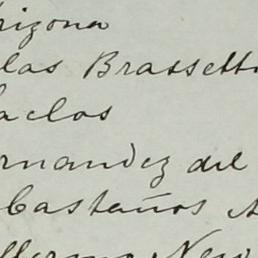 rizona
las Brassett
aclos
rnandez del
Castaños A
llermo New